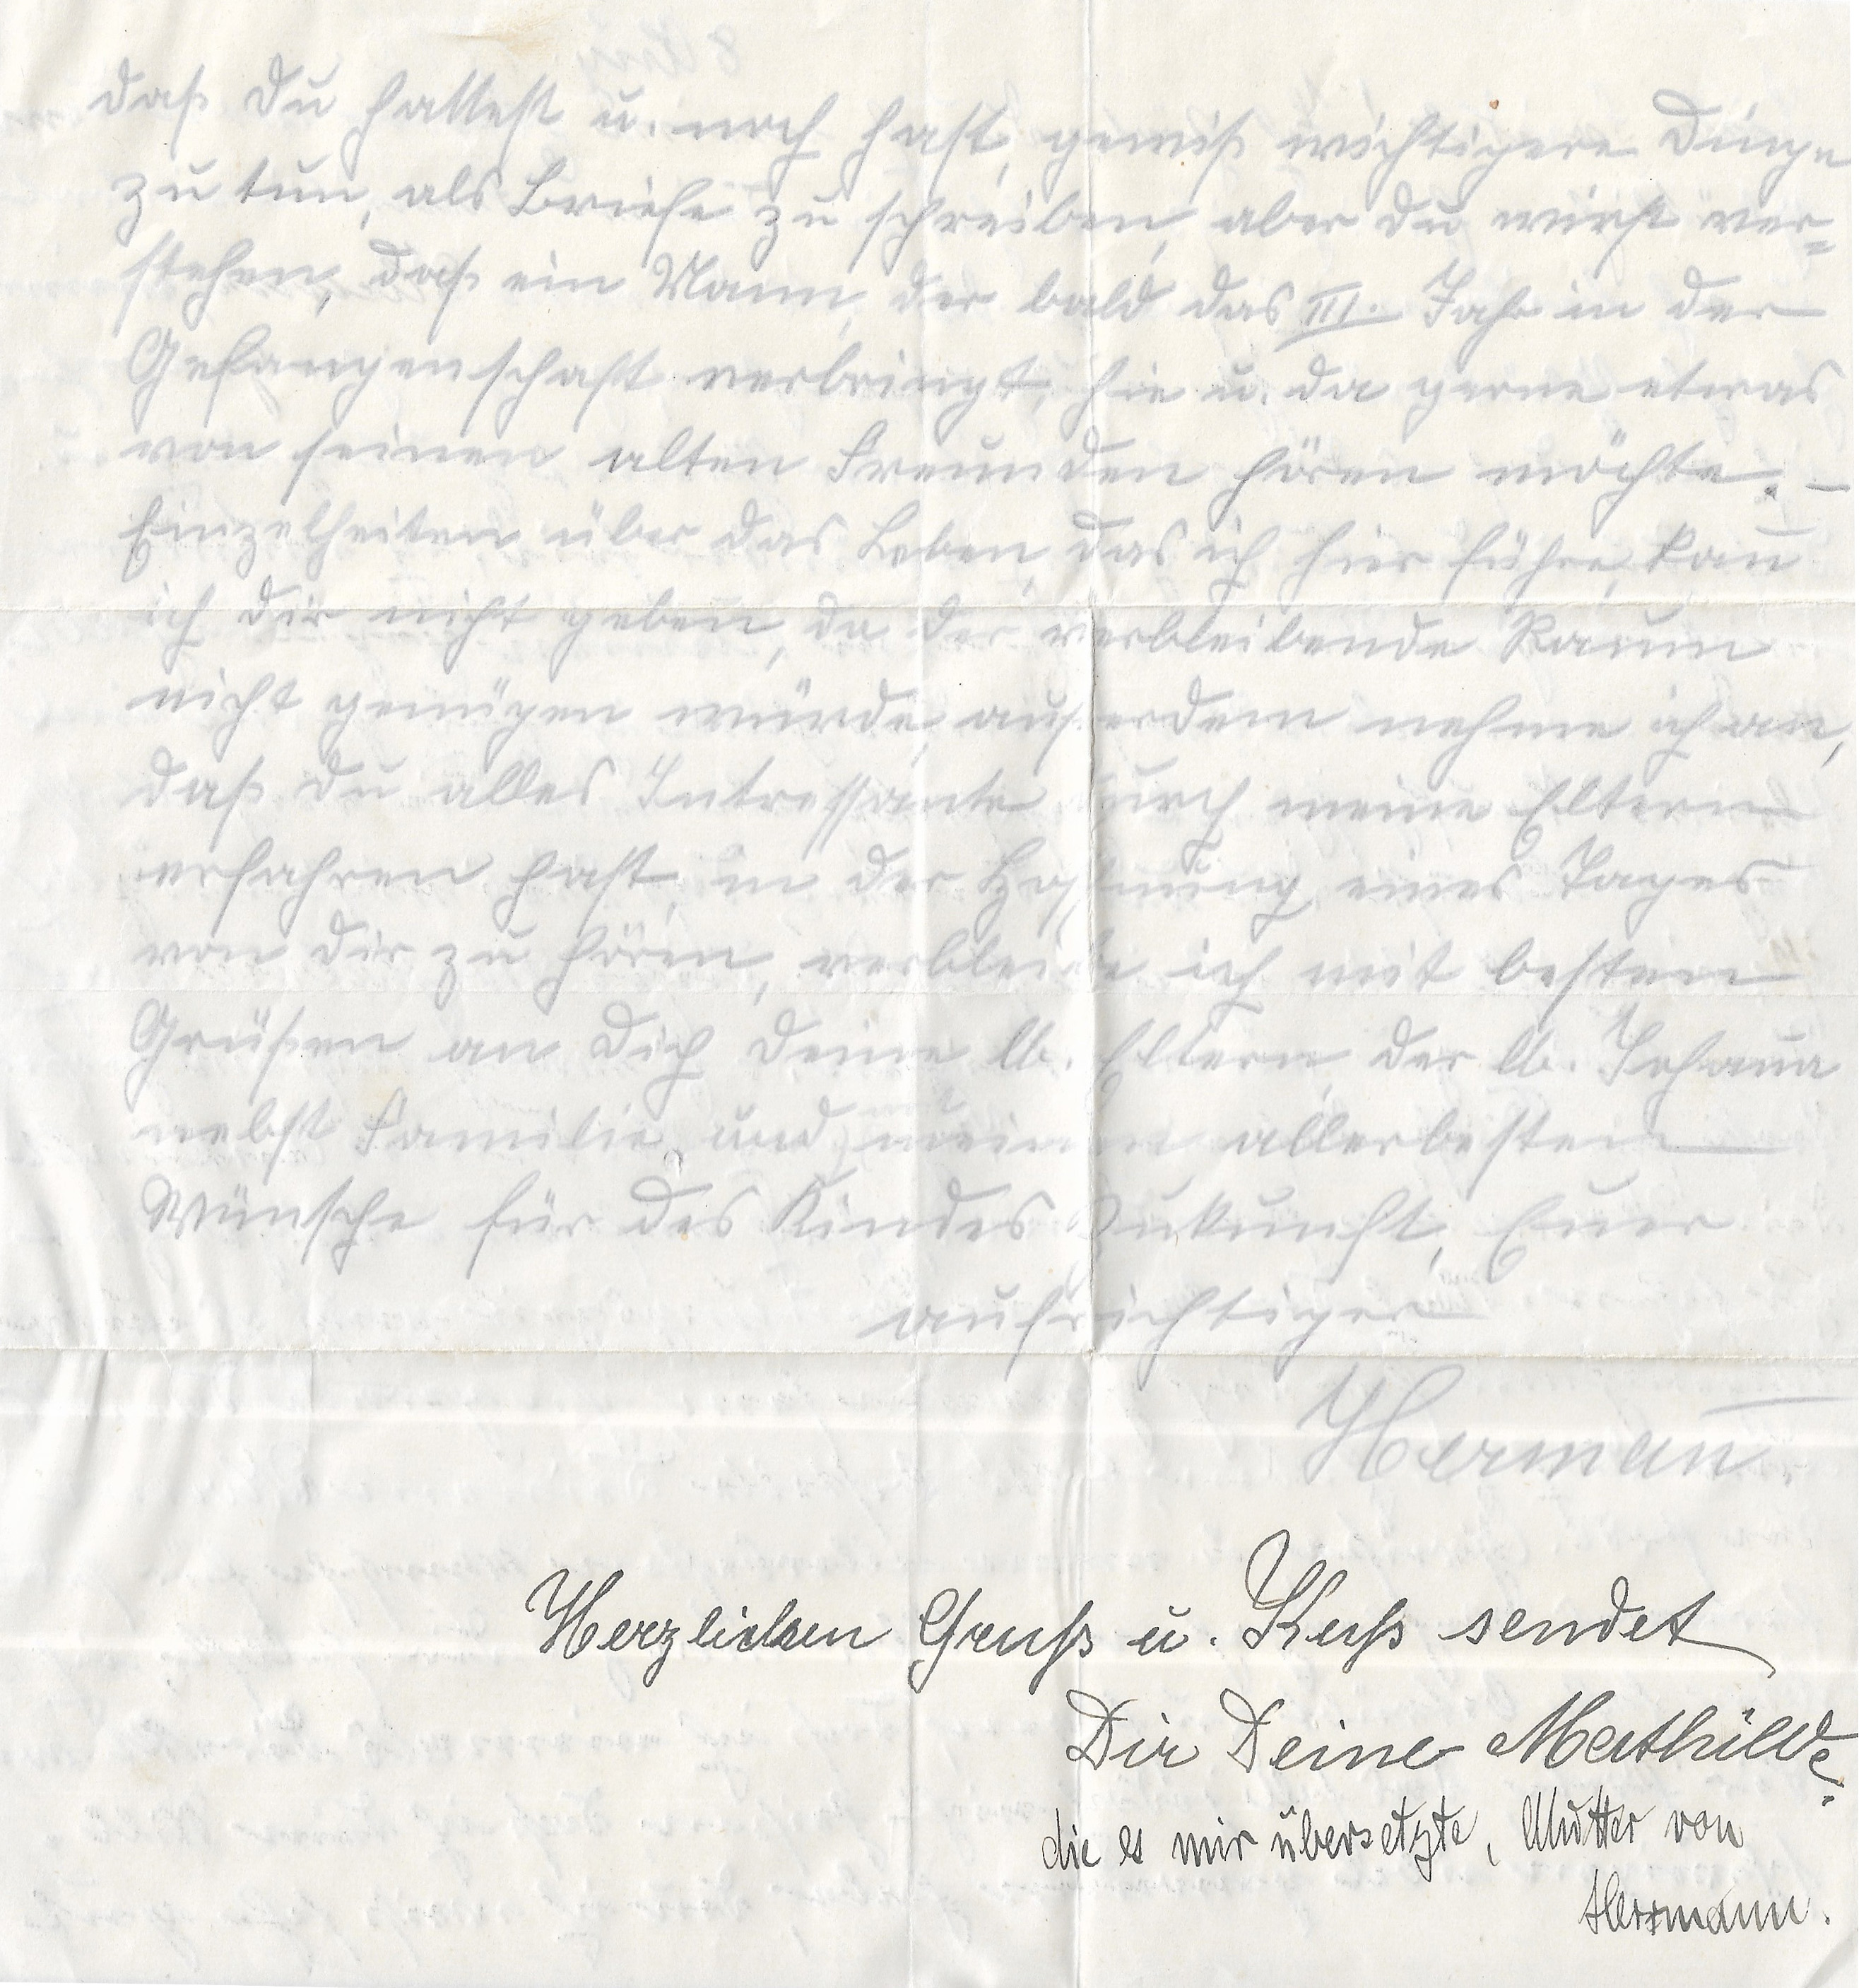 daß Du hattest u. noch hast, gewiß wichtigere Dinge
zu tun, als Briefe zu schreiben, aber Du wirst ver=
stehen, daß ein Mann, der bald das III. Jahr in der
Gefangenschaft verbringt, hie u. da gerne etwas
von seinen alten Freunden hören möchte. –
Einzelheiten über das Leben, das ich hier führe, kan̄
ich Dir nicht geben, da der verbleibende Raum
nicht genügen würde, außerdem nehme ich an,
daß Du alles Intressante durch meine Eltern
erfahren hast, in der Hoffnung eines Tages
von Dir zu hören, verbleibe ich mit besten
Grüßen an Dich Deine lb. Eltern, der lb. Johan̄a
nebst Familie, und mit meinen allerbesten
Wünsche für des Kindes Zukunft, Euer
aufrichtiger
Herman̄.
Herzlichen Gruß u. Kuß sendet
Dir Deine Mathilde.
die es mir übersetzte, Mutter von
Herrmann.